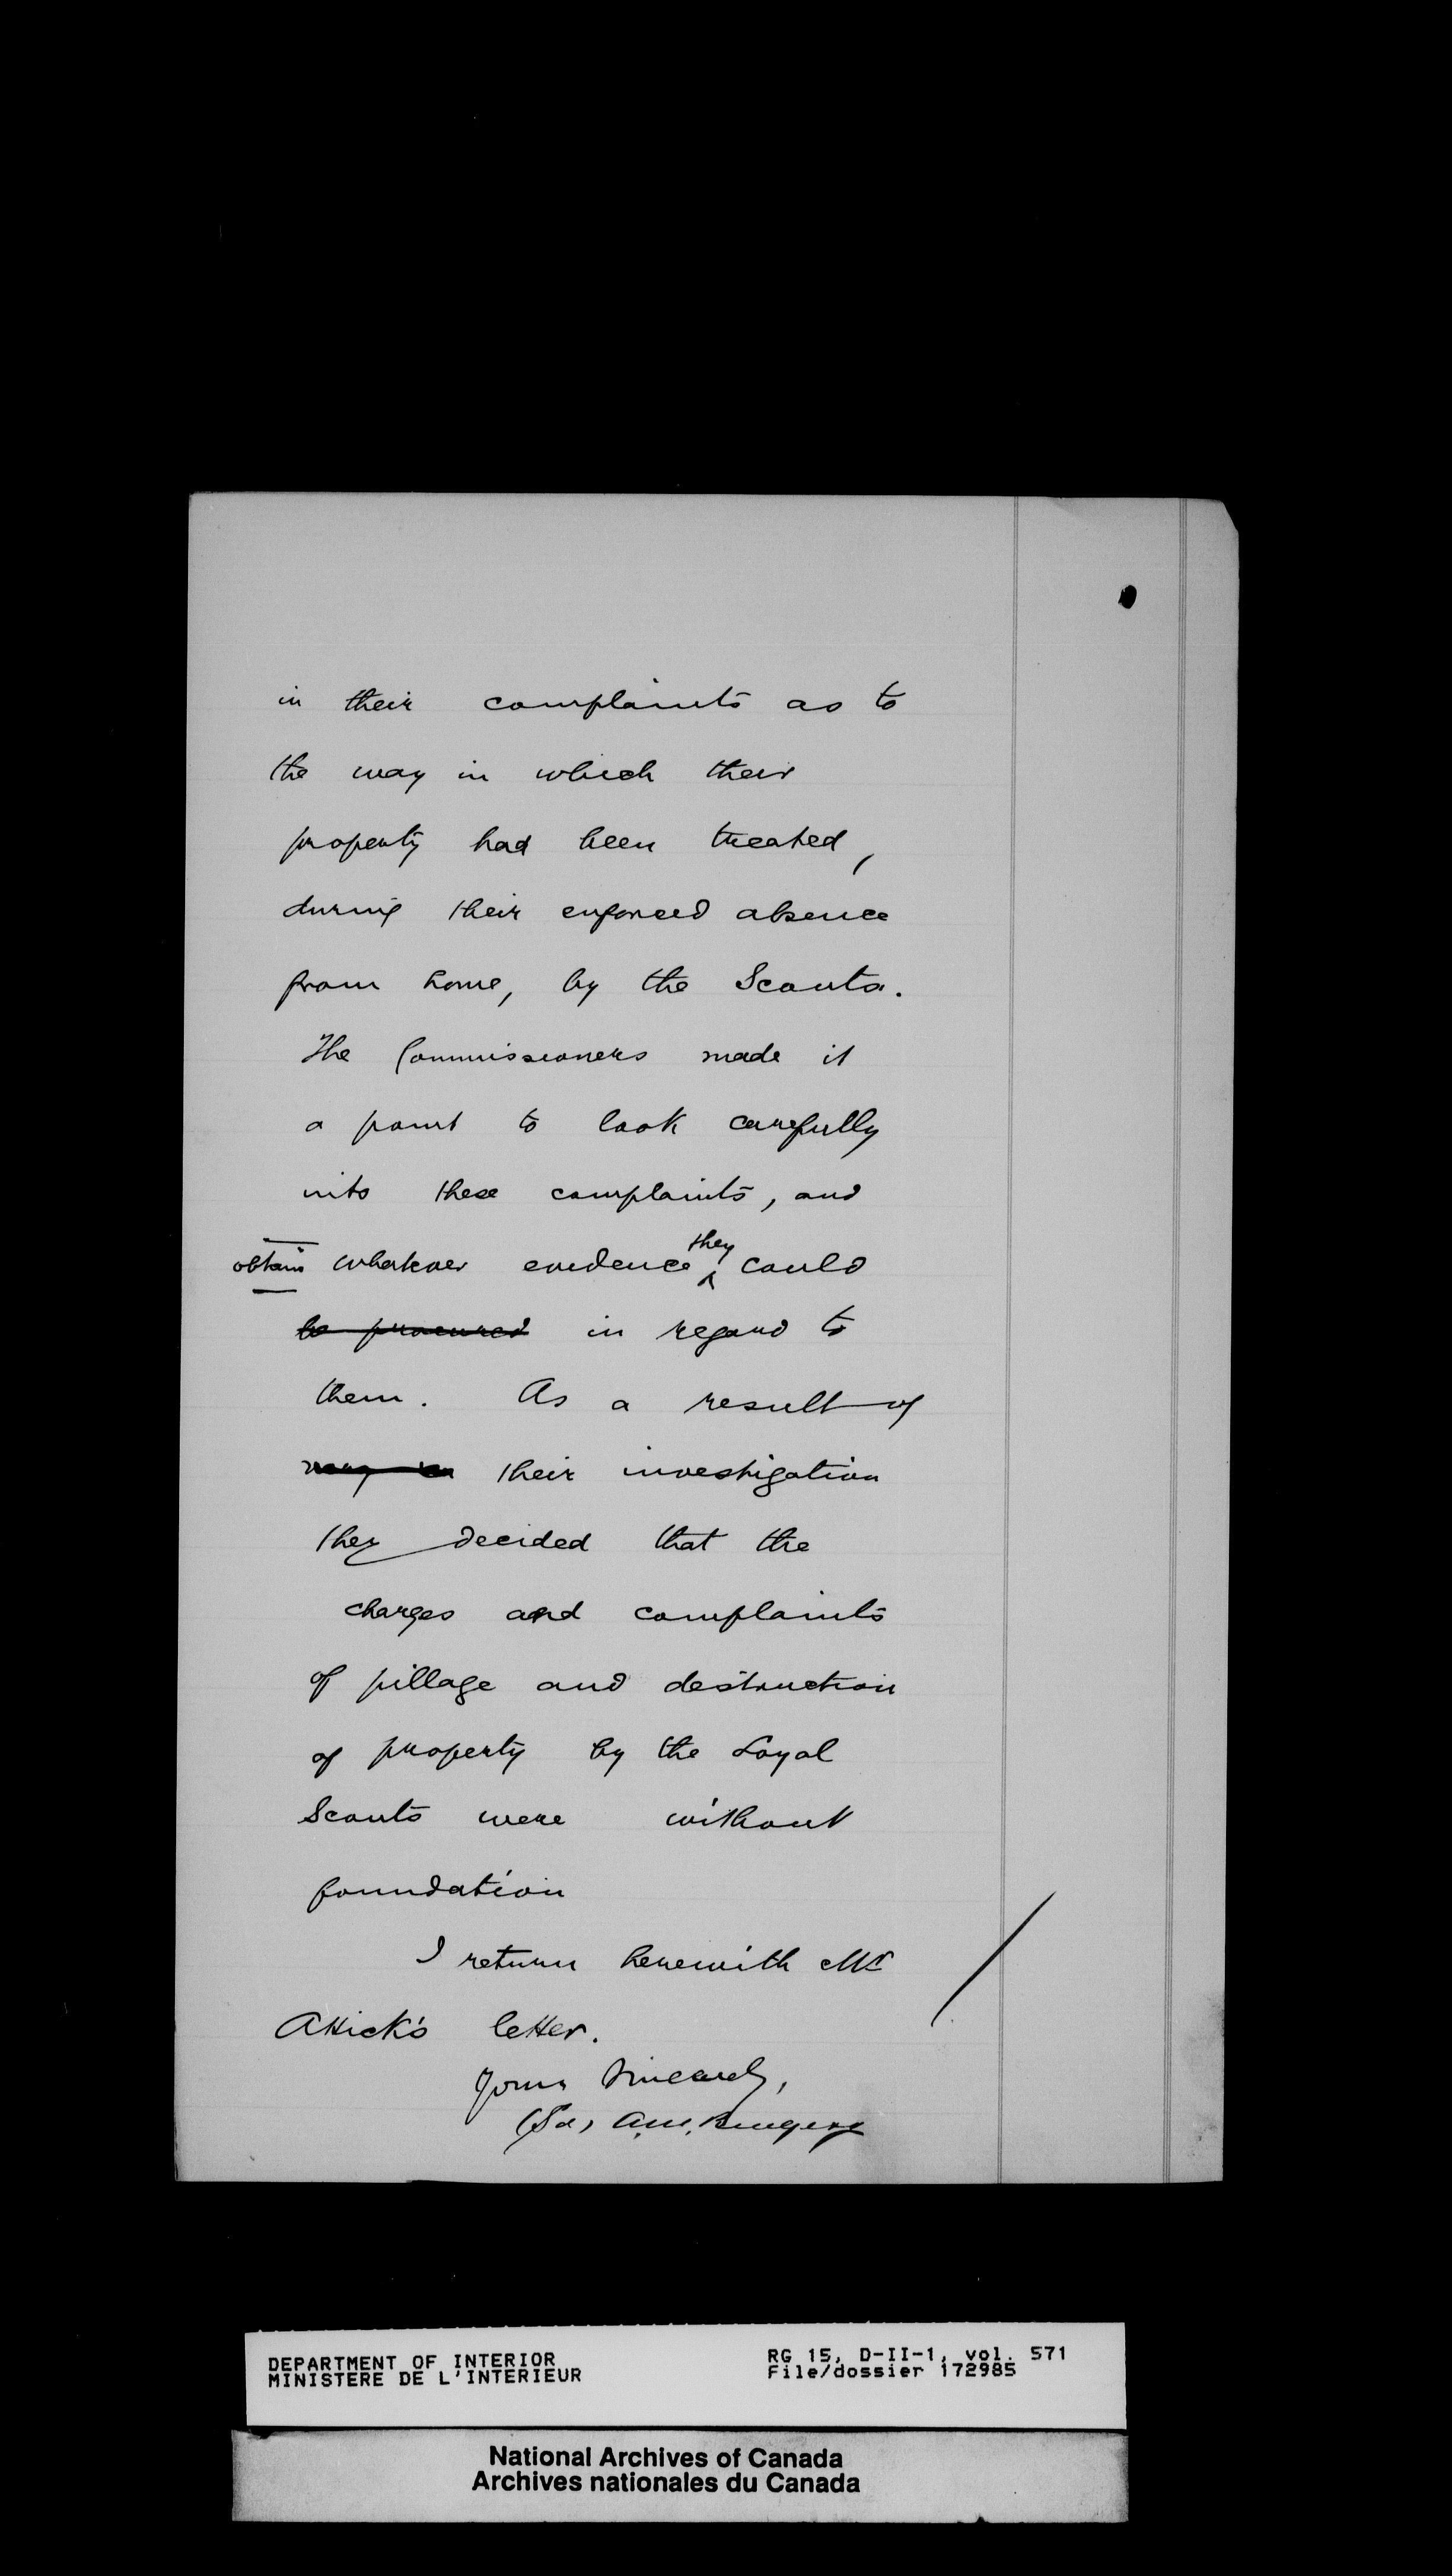 in their complaints as to
the way in which their
property had been treated,
during their enforced absence
from home, by the Scouts.
The Commissioners made it
a point to look carefully
into these complaints, and
obtain whatever evidence they could
be procured in regard to
them. As a result of
their investigation
they decided that the
charges and complaints
of pillage and destruction
of property by the Loyal
Scouts were without
foundation
I return herewith Mr
Attick's letter.
Yours Sincerely,
(Sd) A.M. Burgess
DEPARTMENT OF INTERIOR
MINISTERE DE L'INTERIEUR
RG 15, D-II-1, vol. 571
File/dossier 172985
National Archives of Canada
Archives nationales du Canada